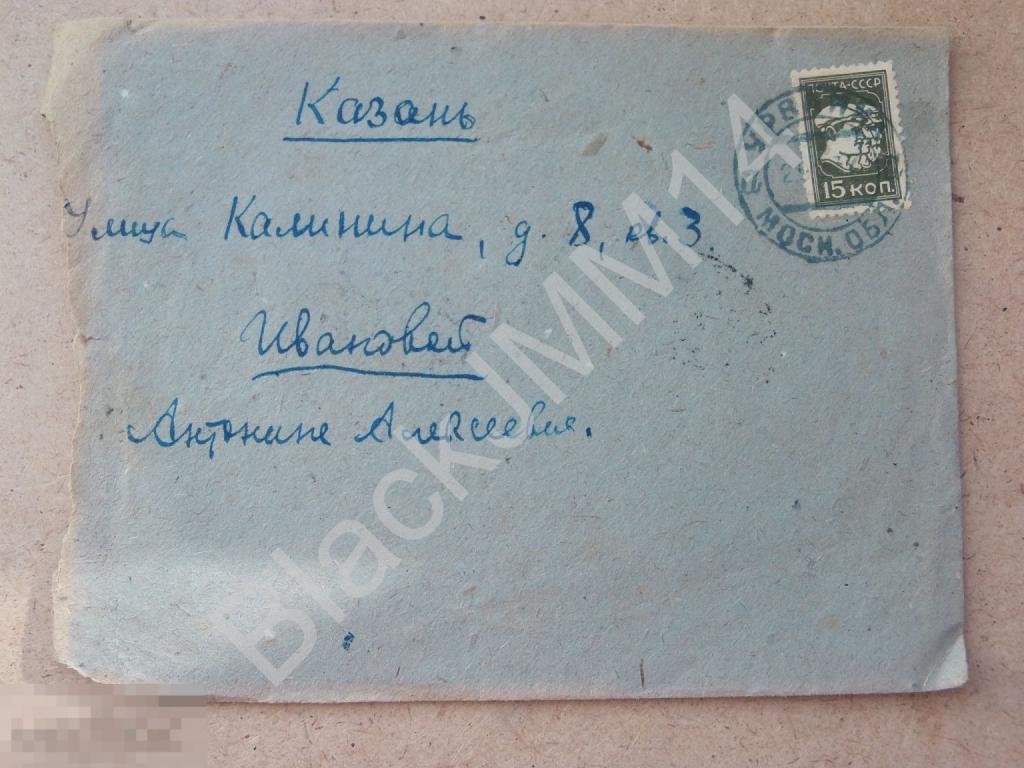 Казань
Улица Калинина, д. 8, кв. 3.
Ивановой
Антонине Алексеевне.
ПОЧТА-СССР
15 КОП.
МОСК. ОБЛ.
BlackJMM14